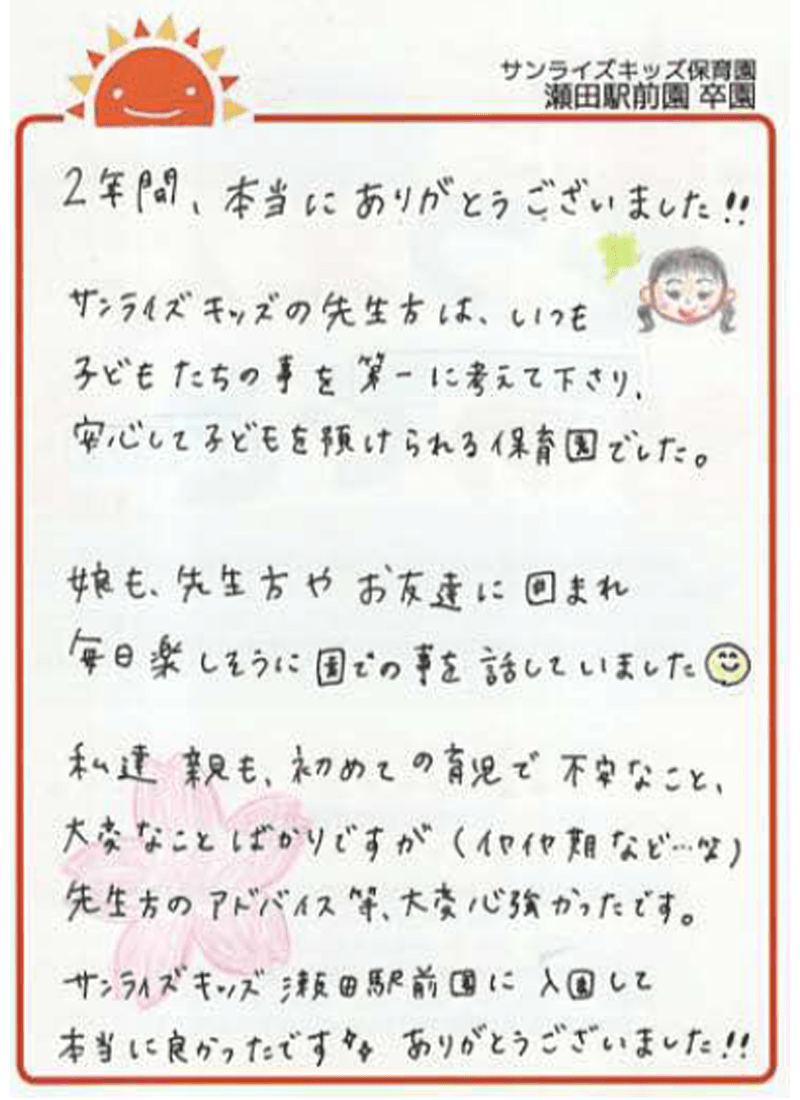 サンライズキッズ保育園
瀬田駅前園 卒園
2年間、本当にありがとうございました!!
サンライズキッズの先生方は、いつも
子どもたちの事を第一に考えて下さり、
安心して子どもを預けられる保育園でした。
娘も、先生方やお友達に囲まれ
毎日楽しそうに園での事を話していました
私達親も、初めての育児で不安なこと、
大変なことばかりですが(イヤイヤ期など…笑)
先生方のアドバイス等、大変心強かったです。
サンライズキッズ瀬田駅前園に入園して
本当に良かったです ありがとうございました!!